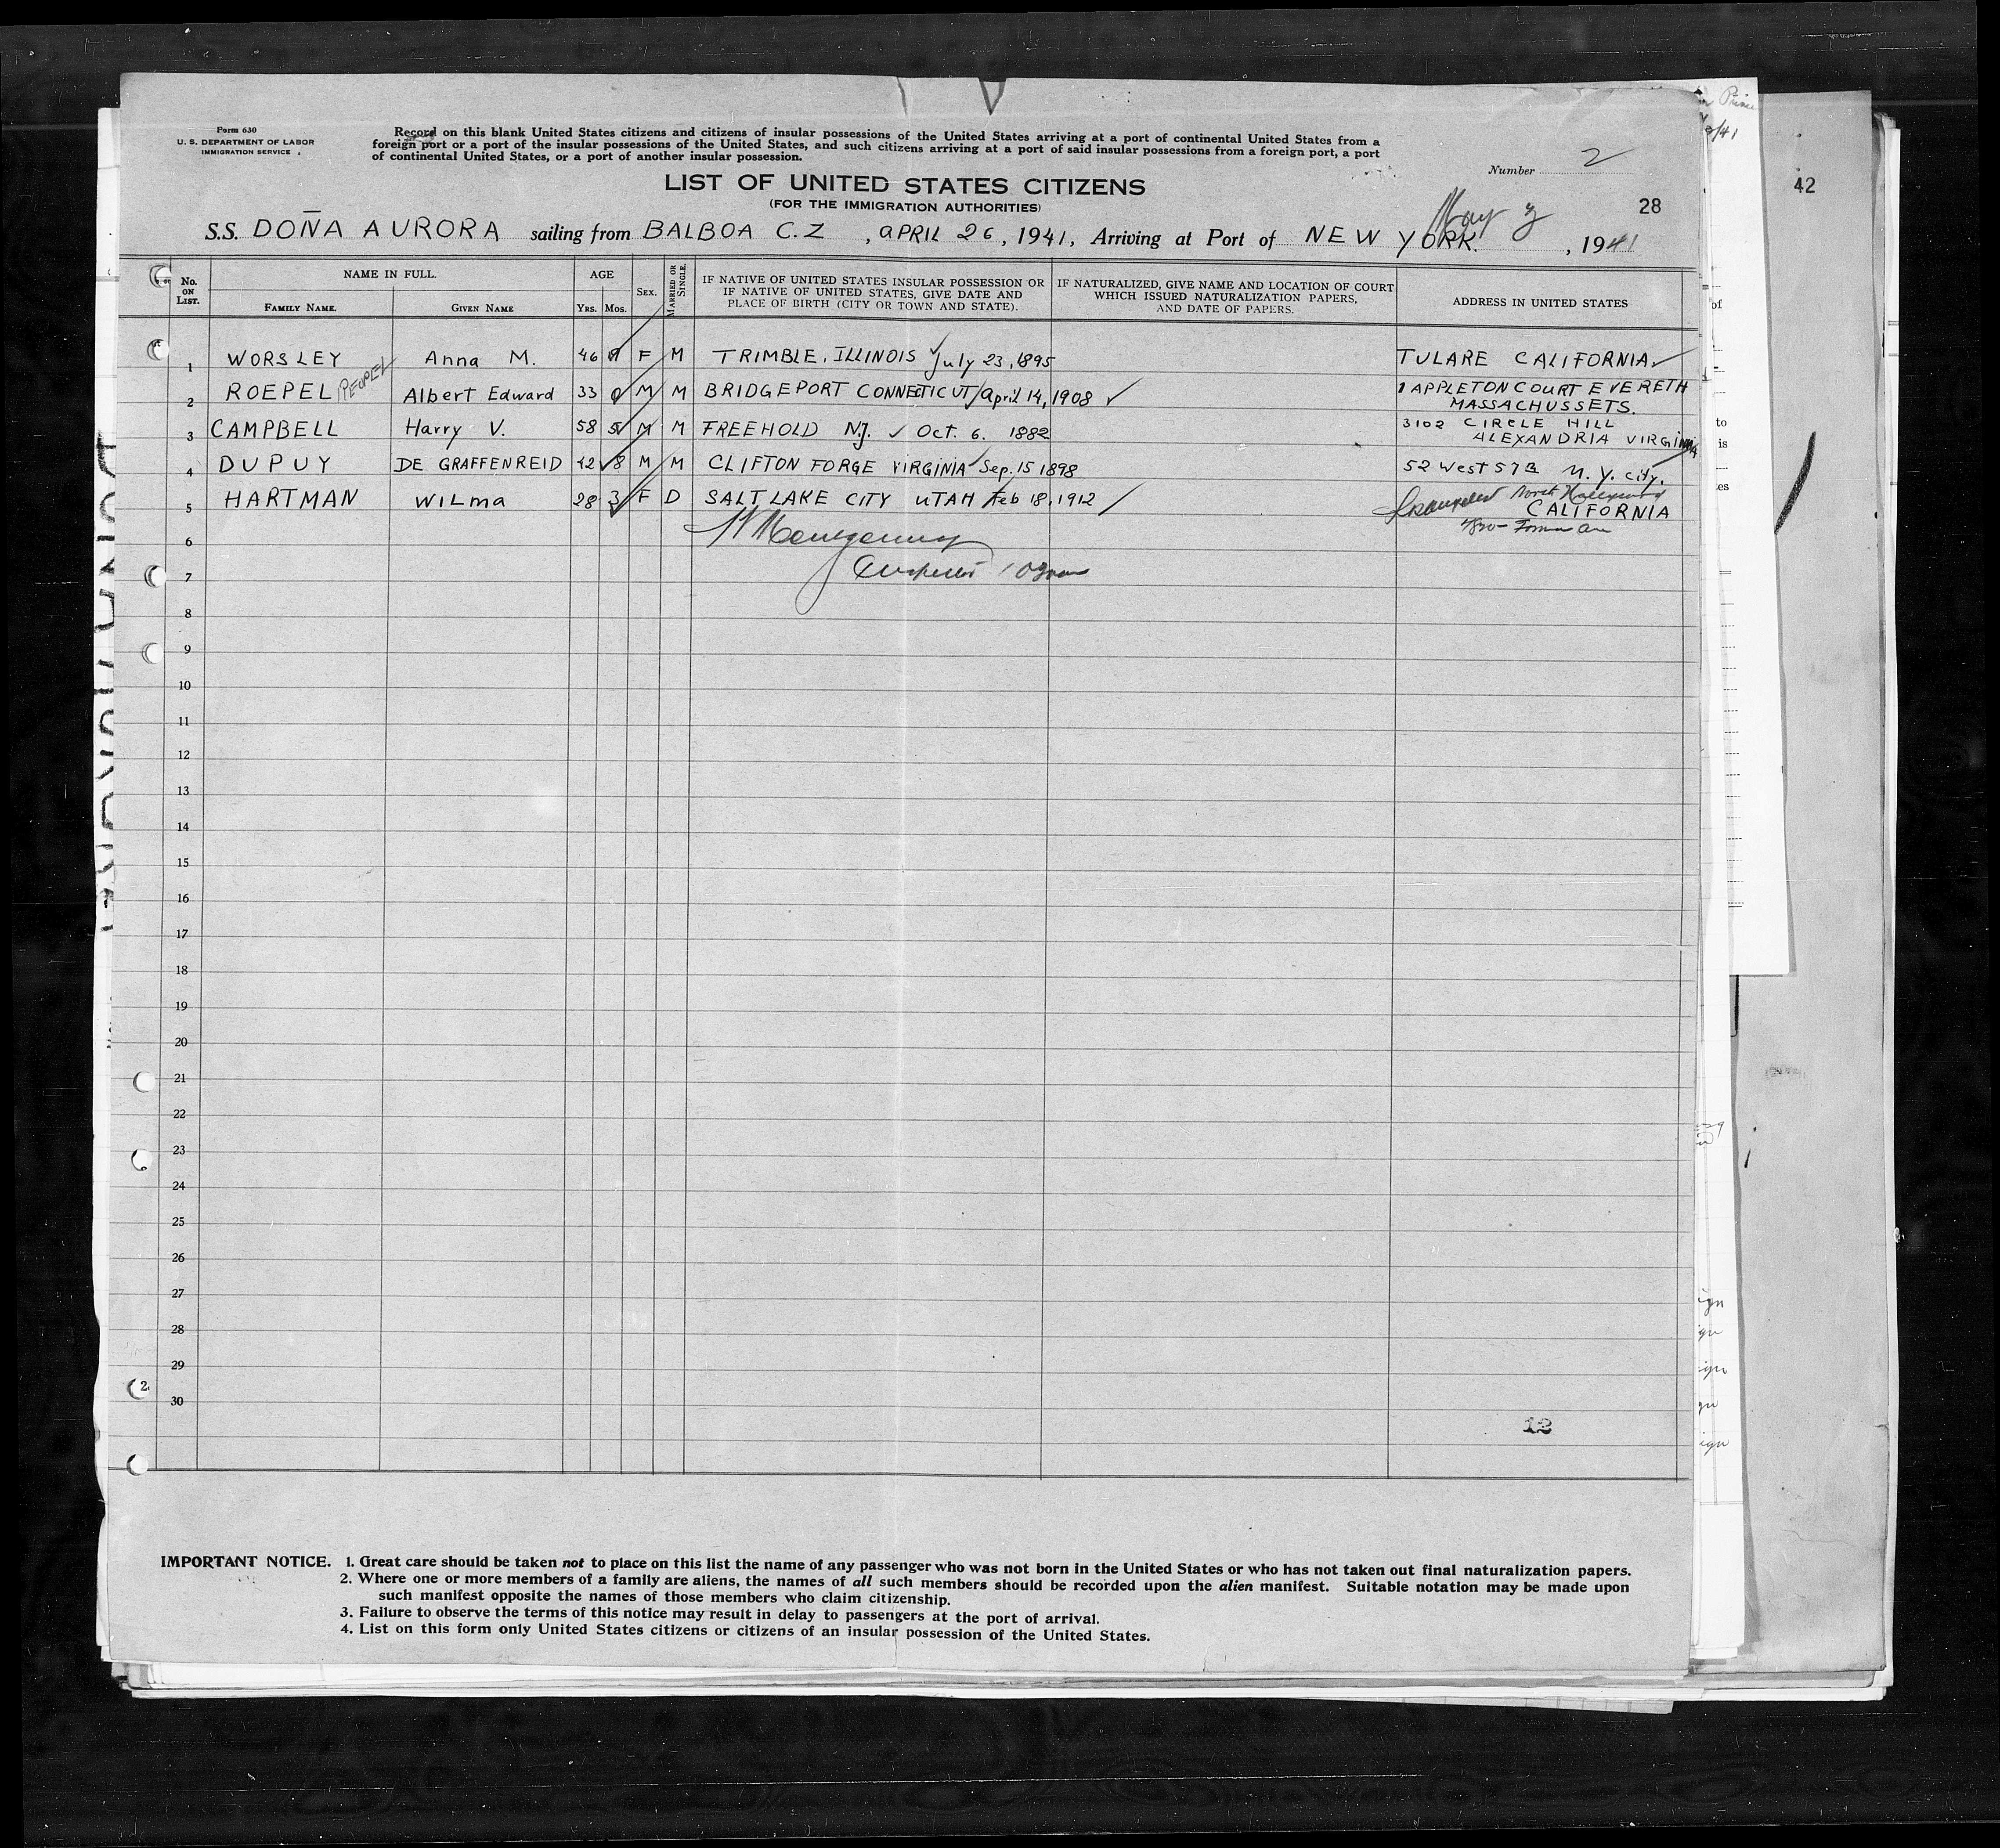 Form 630
U. S. DEPARTMENT OF LABOR
IMMIGRATION SERVICE
Record on this blank United States citizens and citizens of insular possessions of the United States arriving at a port of continental United States from a
foreign port or a port of the insular possessions of the United States, and such citizens arriving at a port of said insular possessions from a foreign port, a port
of continental United States, or a port of another insular possession.
Number 2
LIST OF UNITED STATES CITIZENS
(FOR THE IMMIGRATION AUTHORITIES)
28
42
S.S. DOÑA AURORA sailing from BALBOA C.Z , APRIL 26, 1941, Arriving at Port of NEW YORK. May 3, 1941
No. ON LIST. NAME IN FULL. FAMILY NAME. GIVEN NAME AGE YRS. MOS. SEX. MARRIED OR SINGLE. IF NATIVE OF UNITED STATES INSULAR POSSESSION OR IF NATIVE OF UNITED STATES, GIVE DATE AND PLACE OF BIRTH (CITY OR TOWN AND STATE). IF NATURALIZED, GIVE NAME AND LOCATION OF COURT WHICH ISSUED NATURALIZATION PAPERS, AND DATE OF PAPERS. ADDRESS IN UNITED STATES
1 WORSLEY Anna M. 46 F M TRIMBLE, ILLINOIS July 23, 1895 TULARE CALIFORNIA
2 ROEPEL Albert Edward 33 0 M M BRIDGEPORT CONNECTICUT April 14, 1908 1 APPLETON COURT EVERETH
MASSACHUSSETS.
3 CAMPBELL Harry V. 58 5 M M FREEHOLD NJ. Oct. 6. 1882 3102 CIRCLE HILL
ALEXANDRIA VIRGINIA
4 DUPUY DE GRAFFENREID 42 8 M M CLIFTON FORGE VIRGINIA Sep. 15 1898 52 West 57 N. Y. city.
5 HARTMAN WILma 28 3 F D SALT LAKE CITY UTAH Feb 18, 1912 North Hollywood
CALIFORNIA
6
7
8
9
10
11
12
13
14
15
16
17
18
19
20
21
22
23
24
25
26
27
28
29
30
12
IMPORTANT NOTICE. 1. Great care should be taken not to place on this list the name of any passenger who was not born in the United States or who has not taken out final naturalization papers.
2. Where one or more members of a family are aliens, the names of all such members should be recorded upon the alien manifest. Suitable notation may be made upon
such manifest opposite the names of those members who claim citizenship.
3. Failure to observe the terms of this notice may result in delay to passengers at the port of arrival.
4. List on this form only United States citizens or citizens of an insular possession of the United States.